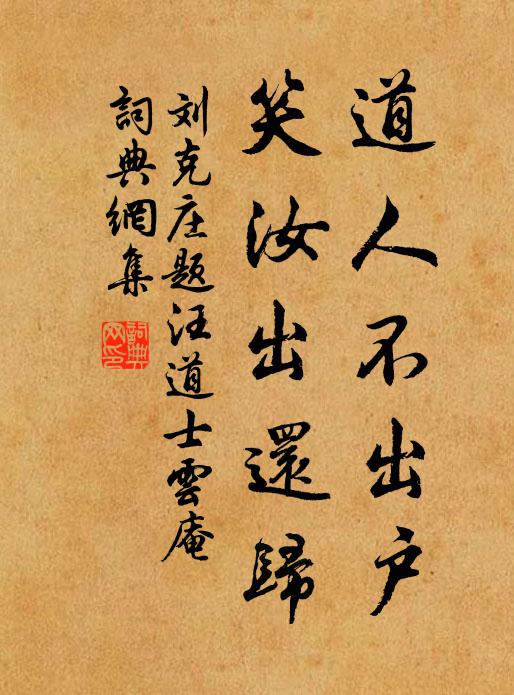 道人不出户
笑汝出還歸
刘克庄题汪道士雲庵
詞典網集
詞典網印